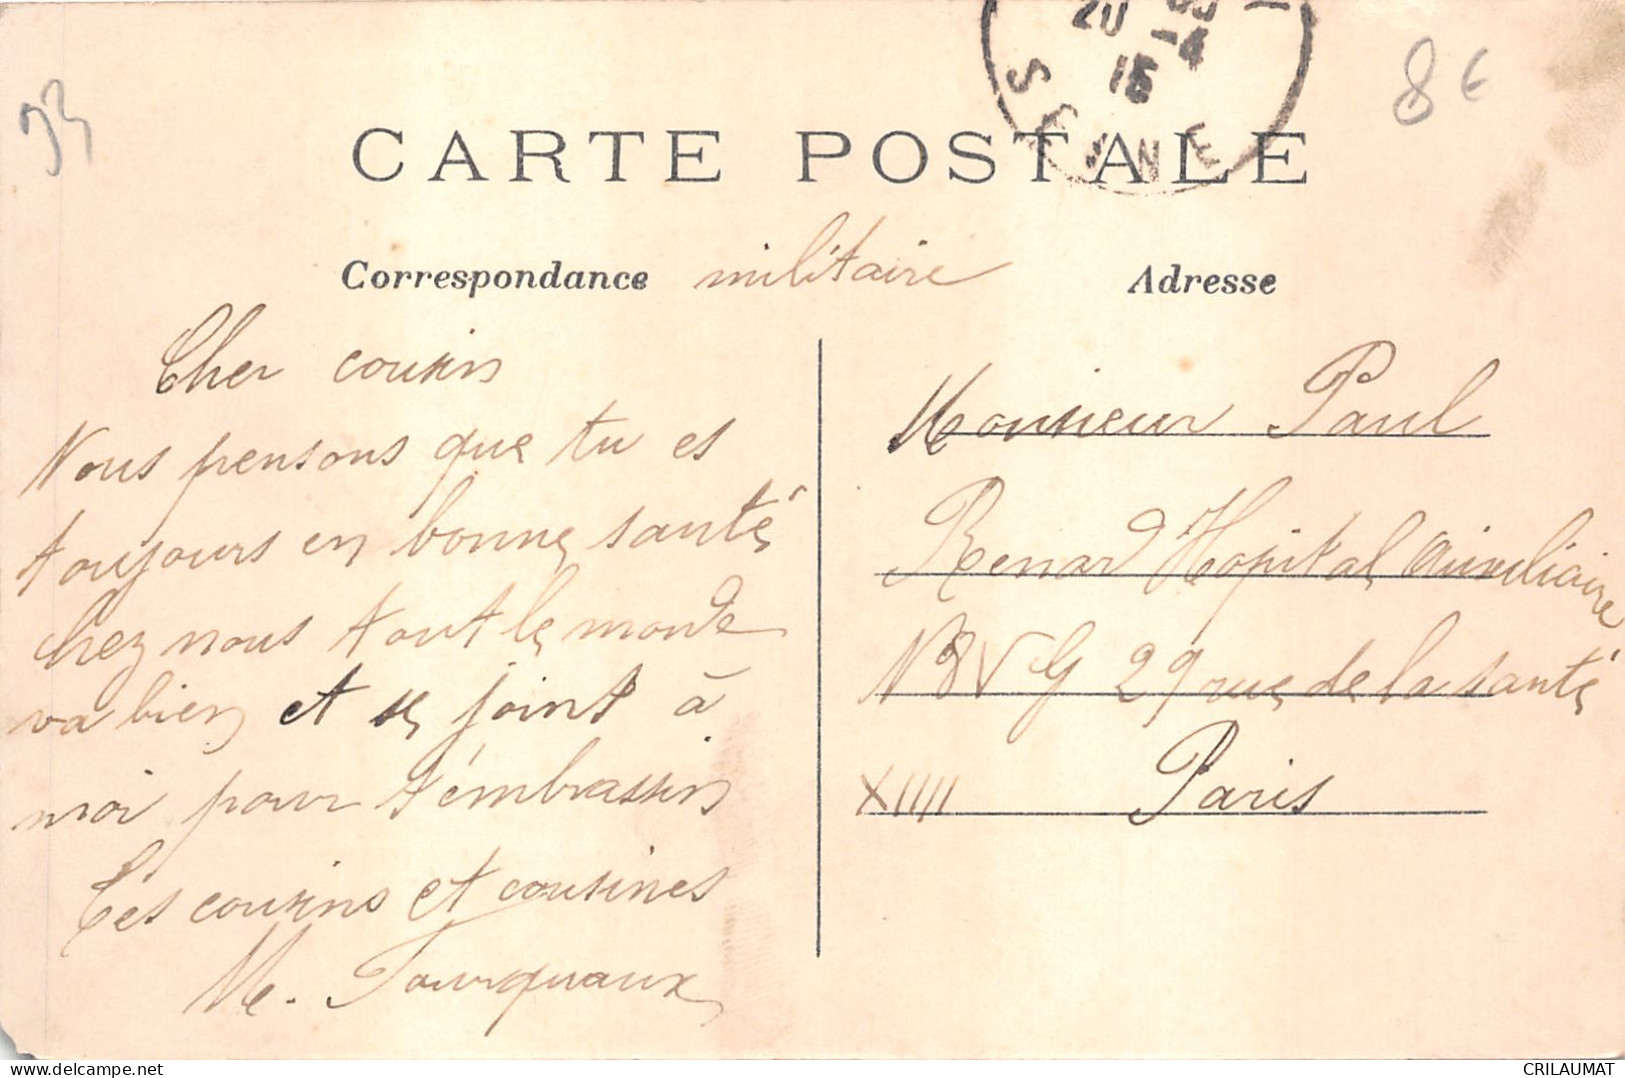 93
20 -4
15
SEINE
8€
CARTE POSTALE
Correspondance militaire
Adresse
Cher cousin
Nous pensons que tu es
toujours en bonne santé
chez nous tout le monde
va bien et se joint à
moi pour t'émbrassin
Tes cousins et cousines
M. Tourquaux
Monsieur Paul
Renard Hopital Auxiliaire
N8 VG 29 rue de la santé
XIIII Paris
CRILAUMAT